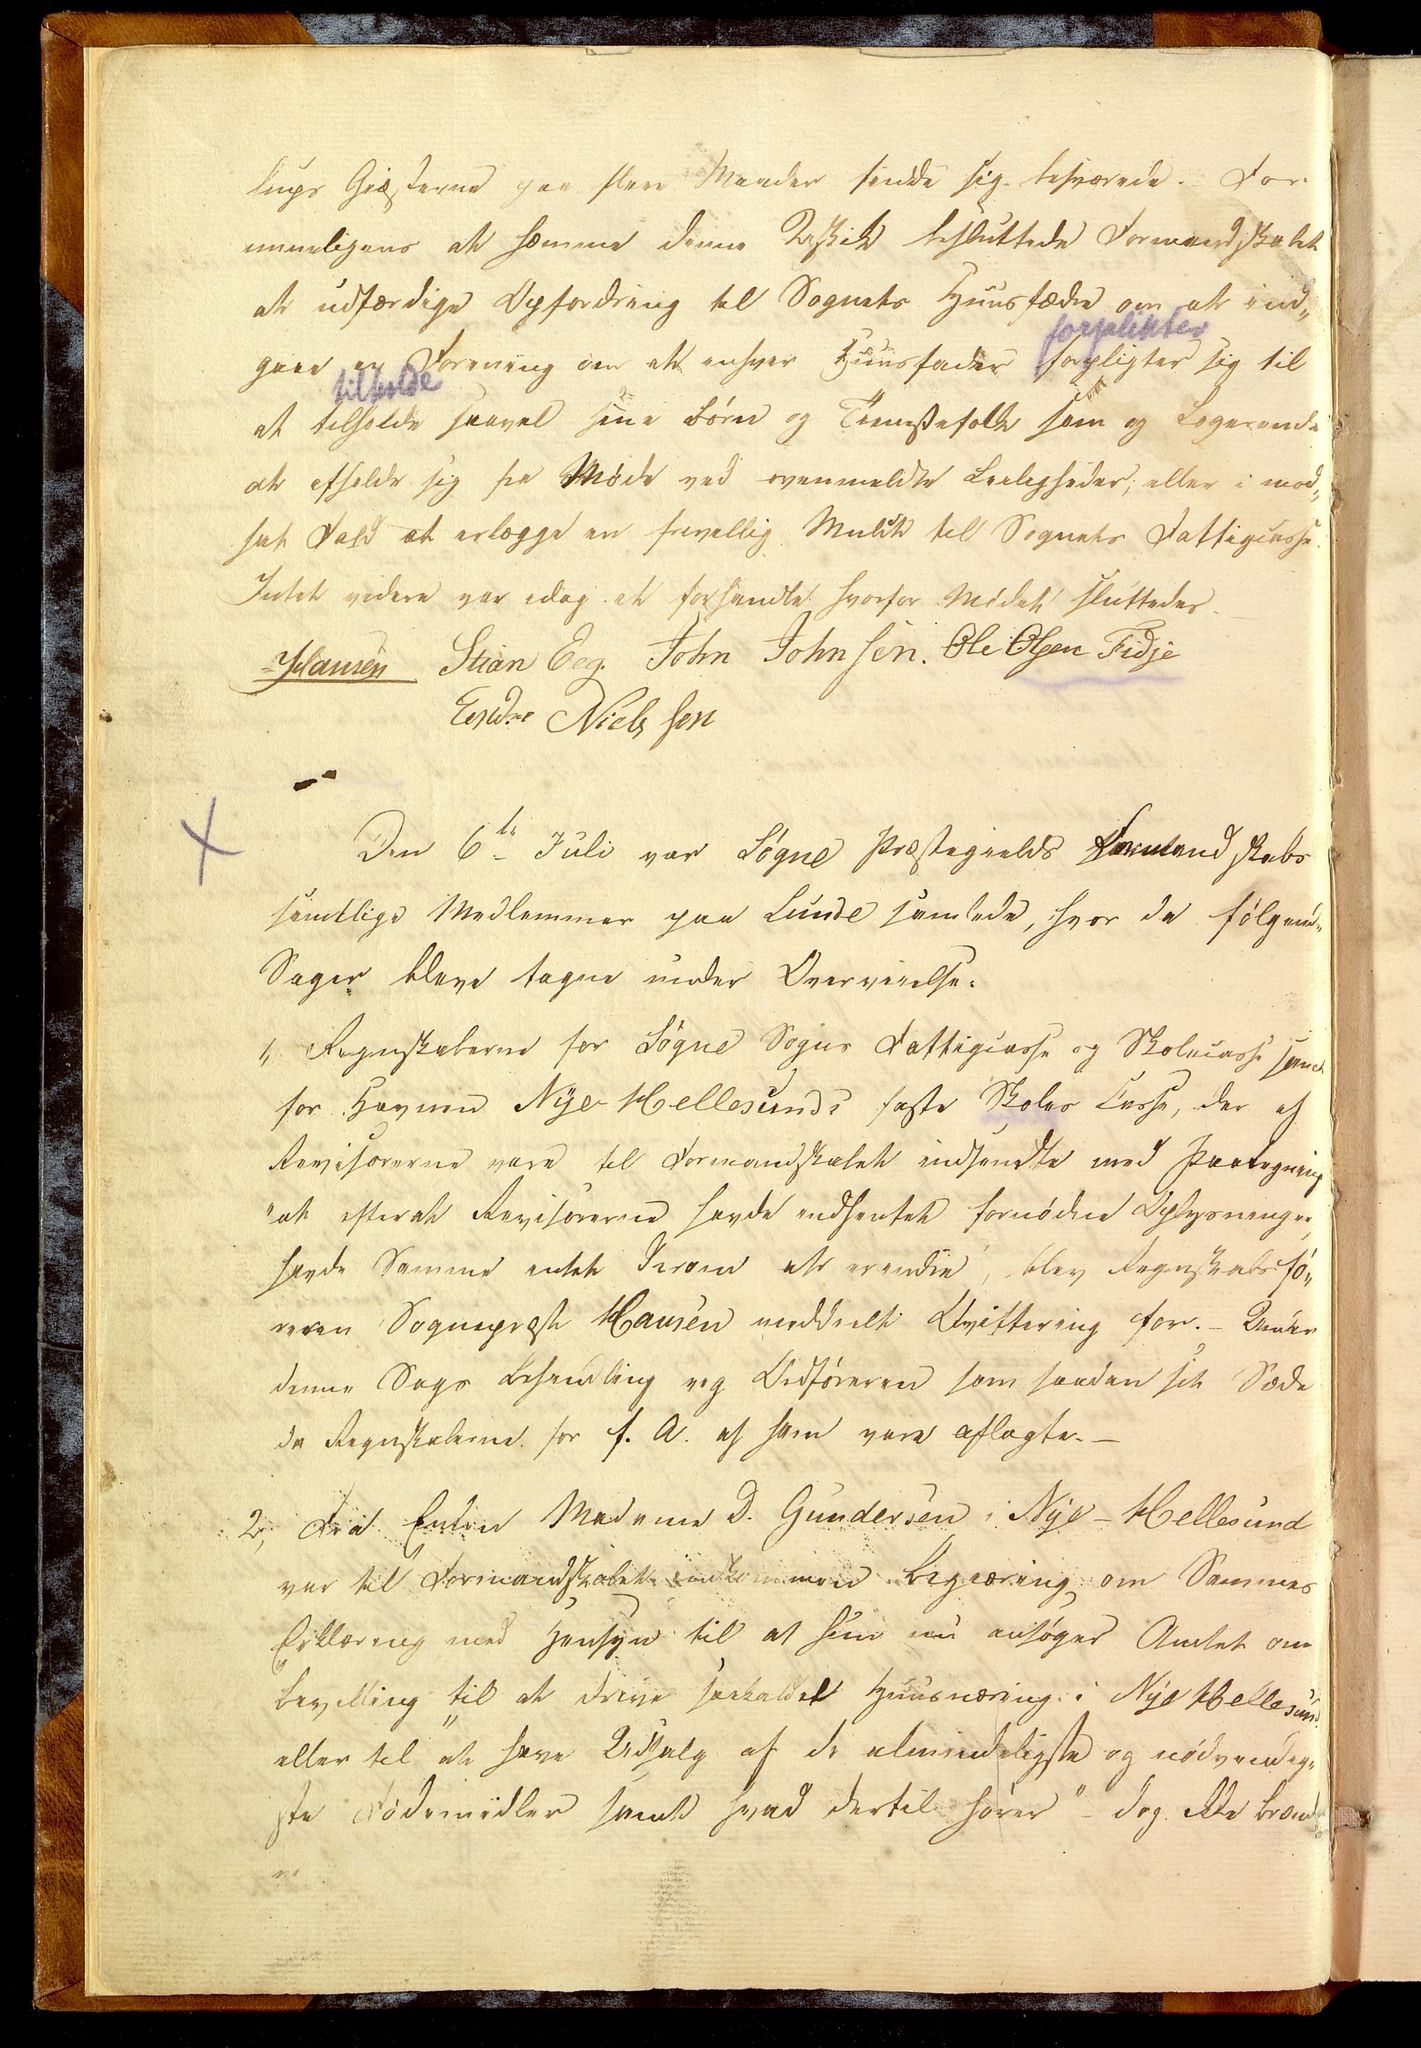 lups Giæsterne paa flere Maader finde sig besværede. For
mueligens at hæmme denne Uskik besluttede Formandskabet
at udfærdige Opfordring til Sognets Huusfædre om at ind„
forpligter
gaae en Forening om at enhver Huusfader forpligter sig til
tilholde
at tilholde saavel sine Børn og Tienestefolk som og Logerende
at afholde sig fra Møde ved ovenmeldte Leiligheder, eller i mod„
sat Fald at erlægge en frivillig Mulkt til Sognets Fattigcasse.
Intet videre var idag at forhandle hvorfor Mødet sluttedes
Hansen Stian Eeg. John Johnsen. Ole Olsen Fidje
Endre Nielssen
Den 6te Juli var Søgne Præstegields Formandskabs
samtlige Medlemmer paa Lunde samlede, hvor da følgende
Sager bleve tagne under Overveielse.
1, Regnskaberne for Søgne Sogns Fattigcasse og Skolecasse samt
for Havnen Nye-Hellesunds faste Skoles Casse, der af
Revisorerne vare til Formandskabet indsendte med Paategning
"at efterat Revisorerne havde indhentet fornødne Oplysninger,
havde Samme intet Iveien at erindre", blev Regnskabsfø„
reren Sognepræst Hansen meddeelt Qvittering for. – Under
denne Sags Behandling veg Ordføreren som saadan sit Sæde
da Regnskaberne for f. A. af ham vare aflagte. –
2, Fra Enken Madame D. Gundersen i Nye-Hellesund
var til Formandskabet indkommen Begiæring om Sammes
Erklæring med Hensyn til at hun nu ansøger Amtet om
Bevilling "til at drive saakaldet Huusnæring i Nye Hellesund
eller til at have Udsalg af de almindeligste og nødvendig„
ste Fødemidler samt hvad dertil hører" – dog ikke Brænde